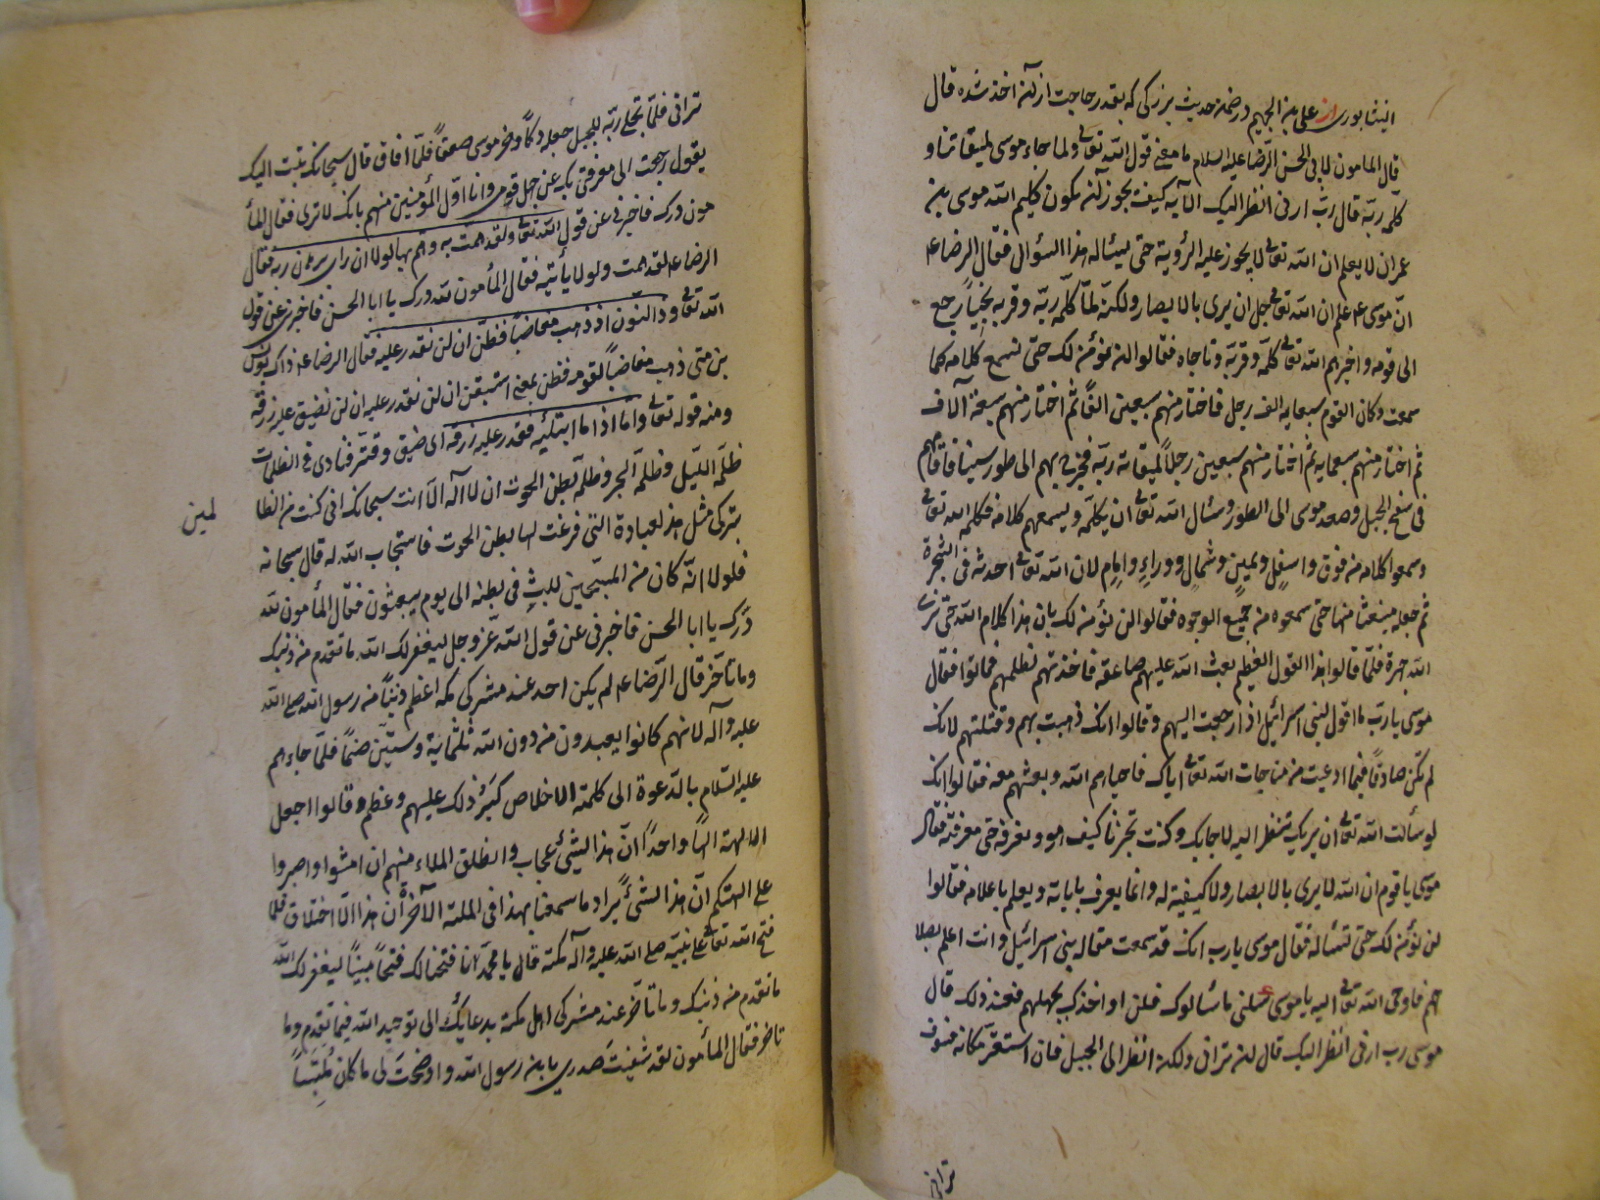 النیشابوری از علی بن الجهیم در ضمن حدیث بزرگی که بقدر حاجت از آن اخذ شده قال
قال المامون لابی الحسن الرضا علیه السلام ما معنی قول الله تعالی ولما جاء موسی لمیقاتنا و
کلمه ربه قال رب ارنی انظر الیک الآیه کیف یجوز ان یکون کلیم الله موسی بن
عمران لا یعلم ان الله تعالی لا یجوز علیه الرؤیة حتی یسئاله هذا السؤال فقال الرضا ع
ان موسی ع علم ان الله تعالی جل ان یری بالابصار ولکنه لما کلمه ربه وقربه نجیاً رجع
الی قومه واخبرهم الله تعالی کلمه وقربه وناجاه فقالوا لن نؤمن لک حتی نسمع کلامه کما
سمعت وکان القوم سبعمایه الف رجل فاختار منهم سبعین الفاً ثم اختار منهم سبعة آلاف
ثم اختار منهم سبعمایه ثم اختار منهم سبعین رجلاً لمیقات ربه فخرج بهم الی طور سینا فاقامهم
فی سفح الجبل وصعد موسی الی الطور وسئال الله تعالی ان یکلمه ویسمعهم کلامه فکلمه الله تعالی
وسمعوا کلامه من فوق واسفل ویمین وشمال ووراء وامام لان الله تعالی احدثه فی الشجرة
ثم جعله منبعثا منها حتی سمعوه من جمیع الوجوه فقالوا لن نؤمن لک بان هذا کلام الله حتی نری
الله جهرة فلما قالوا هذا القول العظیم بعث الله علیهم صاعقة فاخذتهم بظلمهم فماتوا فقال
موسی یا رب ما اقول لبنی اسرائیل اذا رجعت الیهم وقالوا انک ذهبت بهم وقتلتهم لانک
لم تکن صادقاً فیما ادعیت من مناجات الله تعالی ایاک فاحیاهم الله وبعثهم معه فقالوا انک
لو سألت الله تعالی ان یریک تنظر الیه لاجابک وکنت تخبرنا کیف هو ونعرفه حتی معرفته فقال
موسی یا قوم ان الله لا یری بالابصار ولا کیفیة له وانما یعرف بایاته ویعلم باعلامه فقالوا
لن نؤمن لک حتی تسئاله فقال موسی یا رب انک قد سمعت مقاله بنی اسرائیل وانت اعلم بصلا
حهم فاوحی الله تعالی الیه یا موسی سلنی ما سئالوک فلن اواخذک بجهلهم فعند ذلک قال
موسی رب ارنی انظر الیک قال لن ترانی ولکن انظر الی الجبل فان استقر مکانه فسوف
ترانی
ترانی فلما تجلی ربه للجبل جعله دکاً وخر موسی صعقاً فلما افاق قال سبحانک تبت الیک
یقول رجعت الی معرفتی بک عن جهل قومی وانا اول المؤمنین منهم بانک لا تری فقال المأ
مون درک فاخبرنی عن قول الله تعالی ولقد همت به وهم بها لولا ان رای برهان ربه فقال
الرضا ع لقد همت ولولا یأتیه فقال المأمون لله درک یا ابا الحسن فاخبرنی عن قول
الله تعالی وذا النون اذ ذهب مغاضباً فظن ان لن نقدر علیه فقال الرضا ع ذاک یونس
بن متی ذهب مغاضباً لقومه فظن بمعنی استیقن ان لن نقدر علیه ان لن نضیق علیه رزقه
ومنه قوله تعالی واما اذا ما ابتلیه فقدر علیه رزقه ای ضیق وقتر فنادی فی الظلمات
ظلمة اللیل وظلمة البحر وظلمة بطن الحوت ان لا اله الا انت سبحانک انی کنت من الظا
لمین
بترکی مثل هذه العبادة التی فرغت لها بطن الحوت فاستجاب الله له قال سبحانه
فلولا انه کان من المسبحین للبث فی بطنه الی یوم یبعثون فقال المأمون لله
درک یا ابا الحسن فاخبرنی عن قول الله عز وجل لیغفر لک الله ما تقدم من ذنبک
وما تأخر قال الرضا ع لم یکن احد عند مشرکی مکه اعظم ذنباً من رسول الله صلی الله
علیه وآله لانهم کانوا یعبدون من دون الله ثلثمایة وستین صنماً فلما جاءهم
علیه السلام بالدعوة الی کلمة الاخلاص کبر ذلک علیهم وعظم وقالوا اجعل
الالهة الهاً واحداً ان هذا لشیئ عجاب وانطلق الملاء منهم ان امشوا واصبروا
علی الهتکم ان هذا لشیئ یراد ما سمعنا بهذا فی الملة الآخرة ان هذا الا اختلاق فلما
فتح الله تعالی علی نبیه صلی الله علیه وآله مکة قال یا محمد انا فتحنا لک فتحاً مبیناً لیغفر لک الله
ما تقدم من ذنبک وما تأخر عند مشرکی اهل مکة بدعایک الی توحید الله فیما تقدم وما
تاخر فقال المأمون لقد شفیت صدری یا بن رسول الله واوضحت لی ما کان ملتبساً